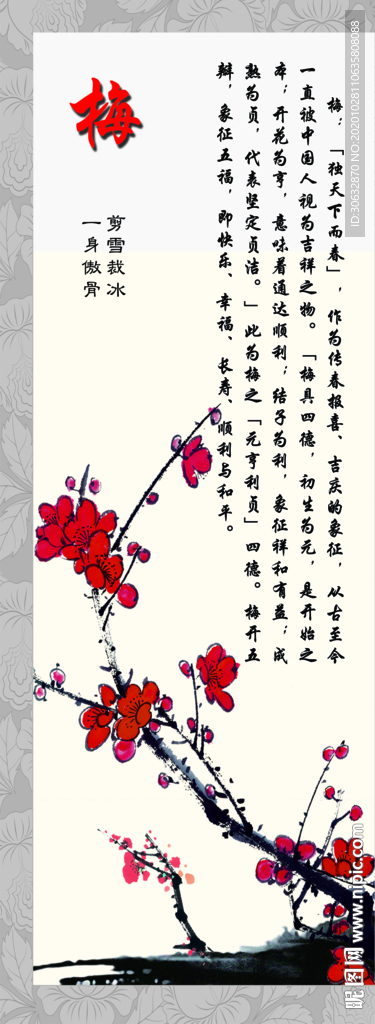 梅
剪雪裁冰
一身傲骨
梅：「独天下而春」，作为传春报喜、吉庆的象征，从古至今
一直被中国人视为吉祥之物。「梅具四德，初生为元，是开始之
本；开花为亨，意味着通达顺利；结子为利，象征祥和有益；成
熟为贞，代表坚定贞洁。」此为梅之「元亨利贞」四德。梅开五
瓣，象征五福，即快乐、幸福、长寿、顺利与和平。
ID:30632870 NO:20201028110635808088
昵图网 www.nipic.com